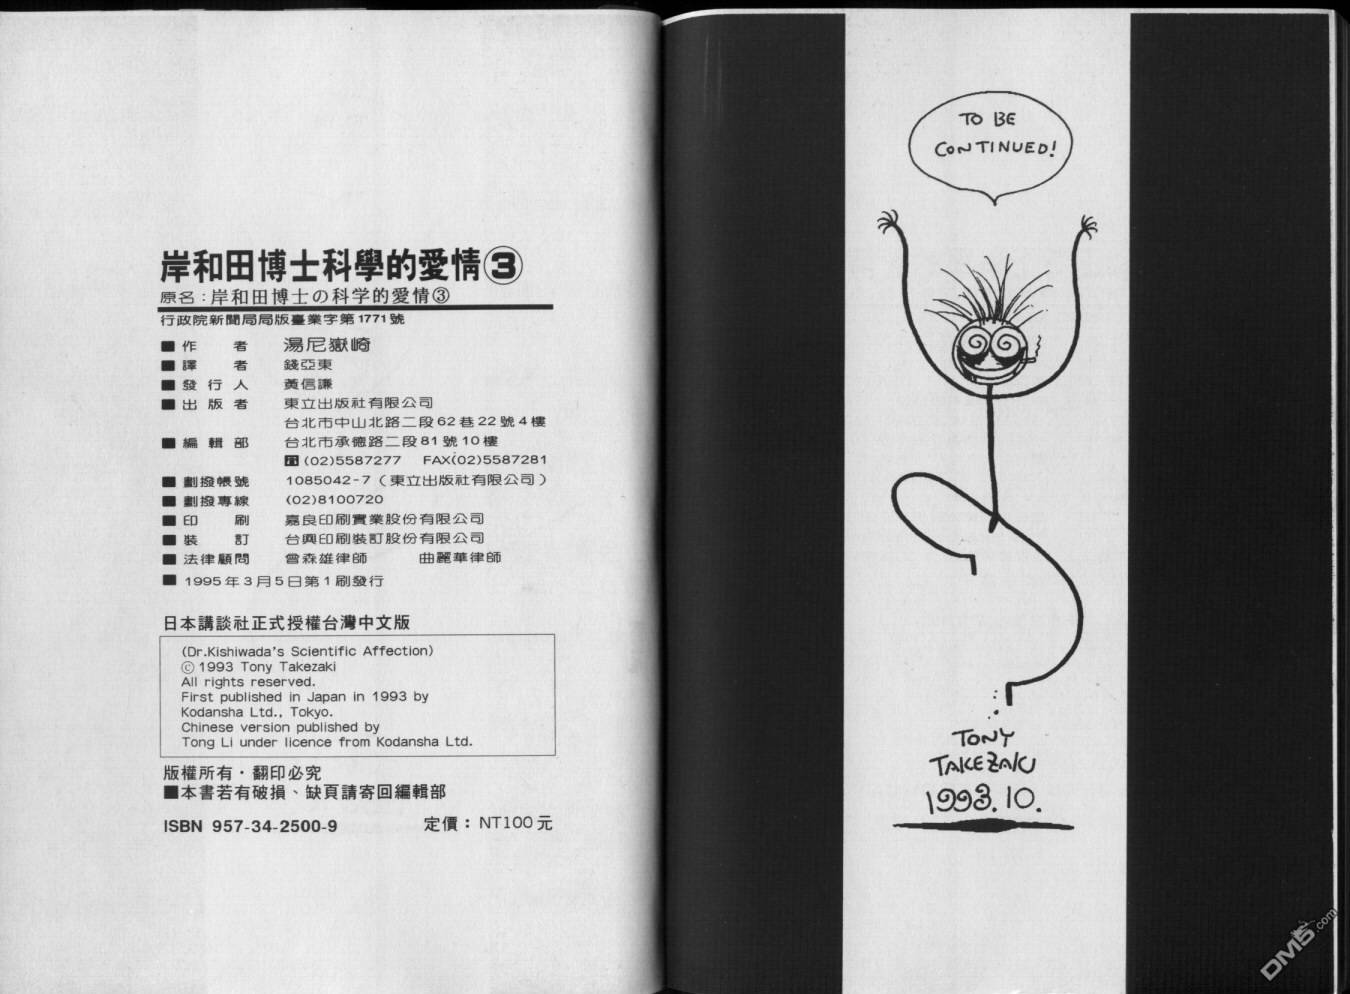 岸和田博士科學的愛情③
原名：岸和田博士の科学的愛情③
行政院新聞局局版臺業字第1771號
■作者 湯尼嶽崎
■譯者 錢亞東
■發行人 黃信謙
■出版者 東立出版社有限公司
台北市中山北路二段62巷22號4樓
■編輯部 台北市承德路二段81號10樓
☎(02)5587277 FAX(02)5587281
■劃撥帳號 1085042-7（東立出版社有限公司）
■劃撥專線 (02)8100720
■印刷 嘉良印刷實業股份有限公司
■裝訂 台興印刷裝訂股份有限公司
■法律顧問 曾森雄律師 曲麗華律師
■1995年3月5日第1刷發行
日本講談社正式授權台灣中文版
(Dr.Kishiwada's Scientific Affection)
©1993 Tony Takezaki
All rights reserved.
First published in Japan in 1993 by
Kodansha Ltd., Tokyo.
Chinese version published by
Tong Li under licence from Kodansha Ltd.
版權所有・翻印必究
■本書若有破損、缺頁請寄回編輯部
ISBN 957-34-2500-9 定價：NT100元
TO BE
CONTINUED!
TONY
TAKEZAKI
1993.10.
DM5.com